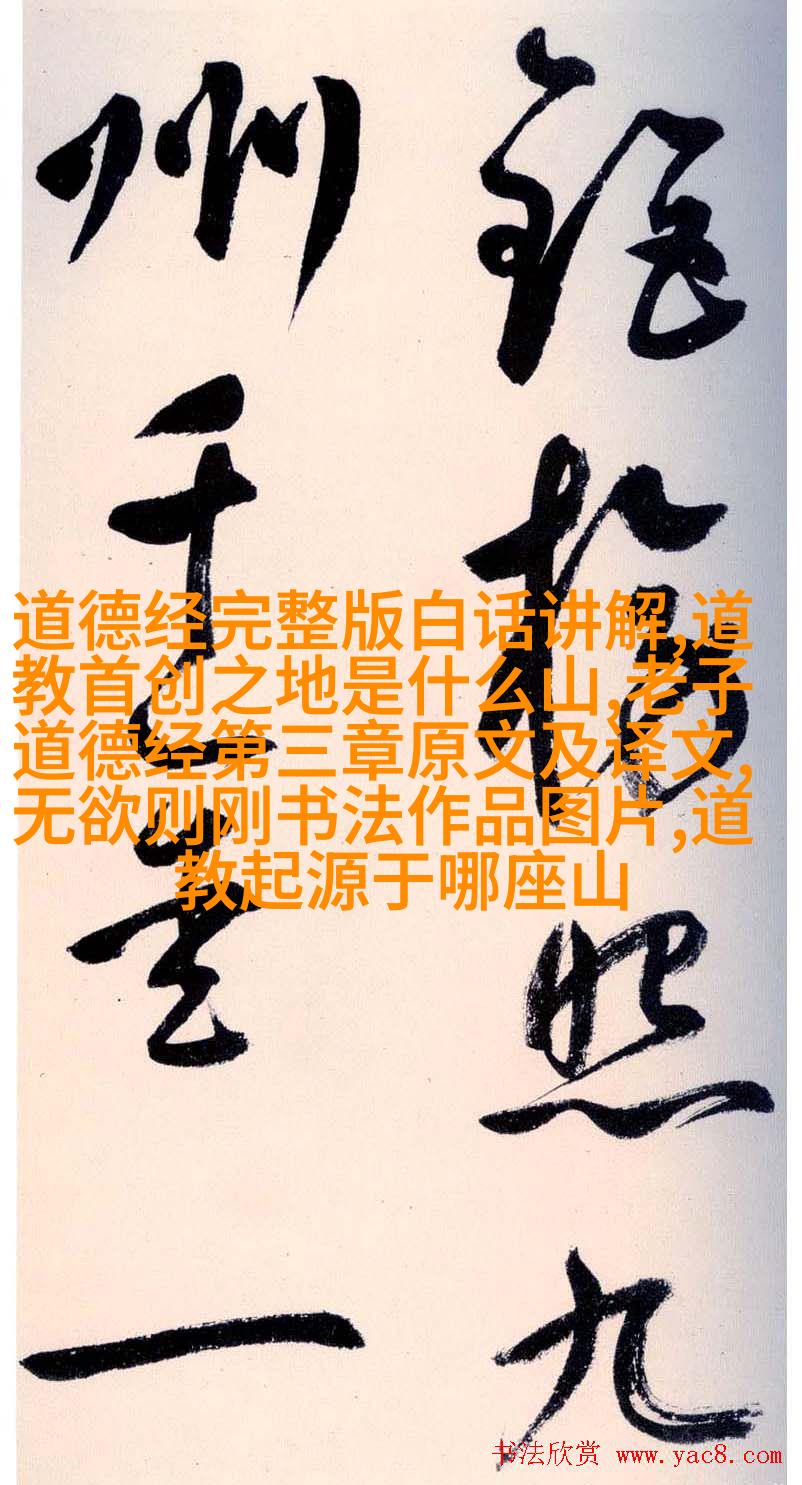 照九
州千一
道德经完整版白话讲解,道
教首创之地是什么山,老子
道德经第三章原文及译文,
无欲则刚书法作品图片,道
教起源于哪座山
书法欣赏 www.yac8.com